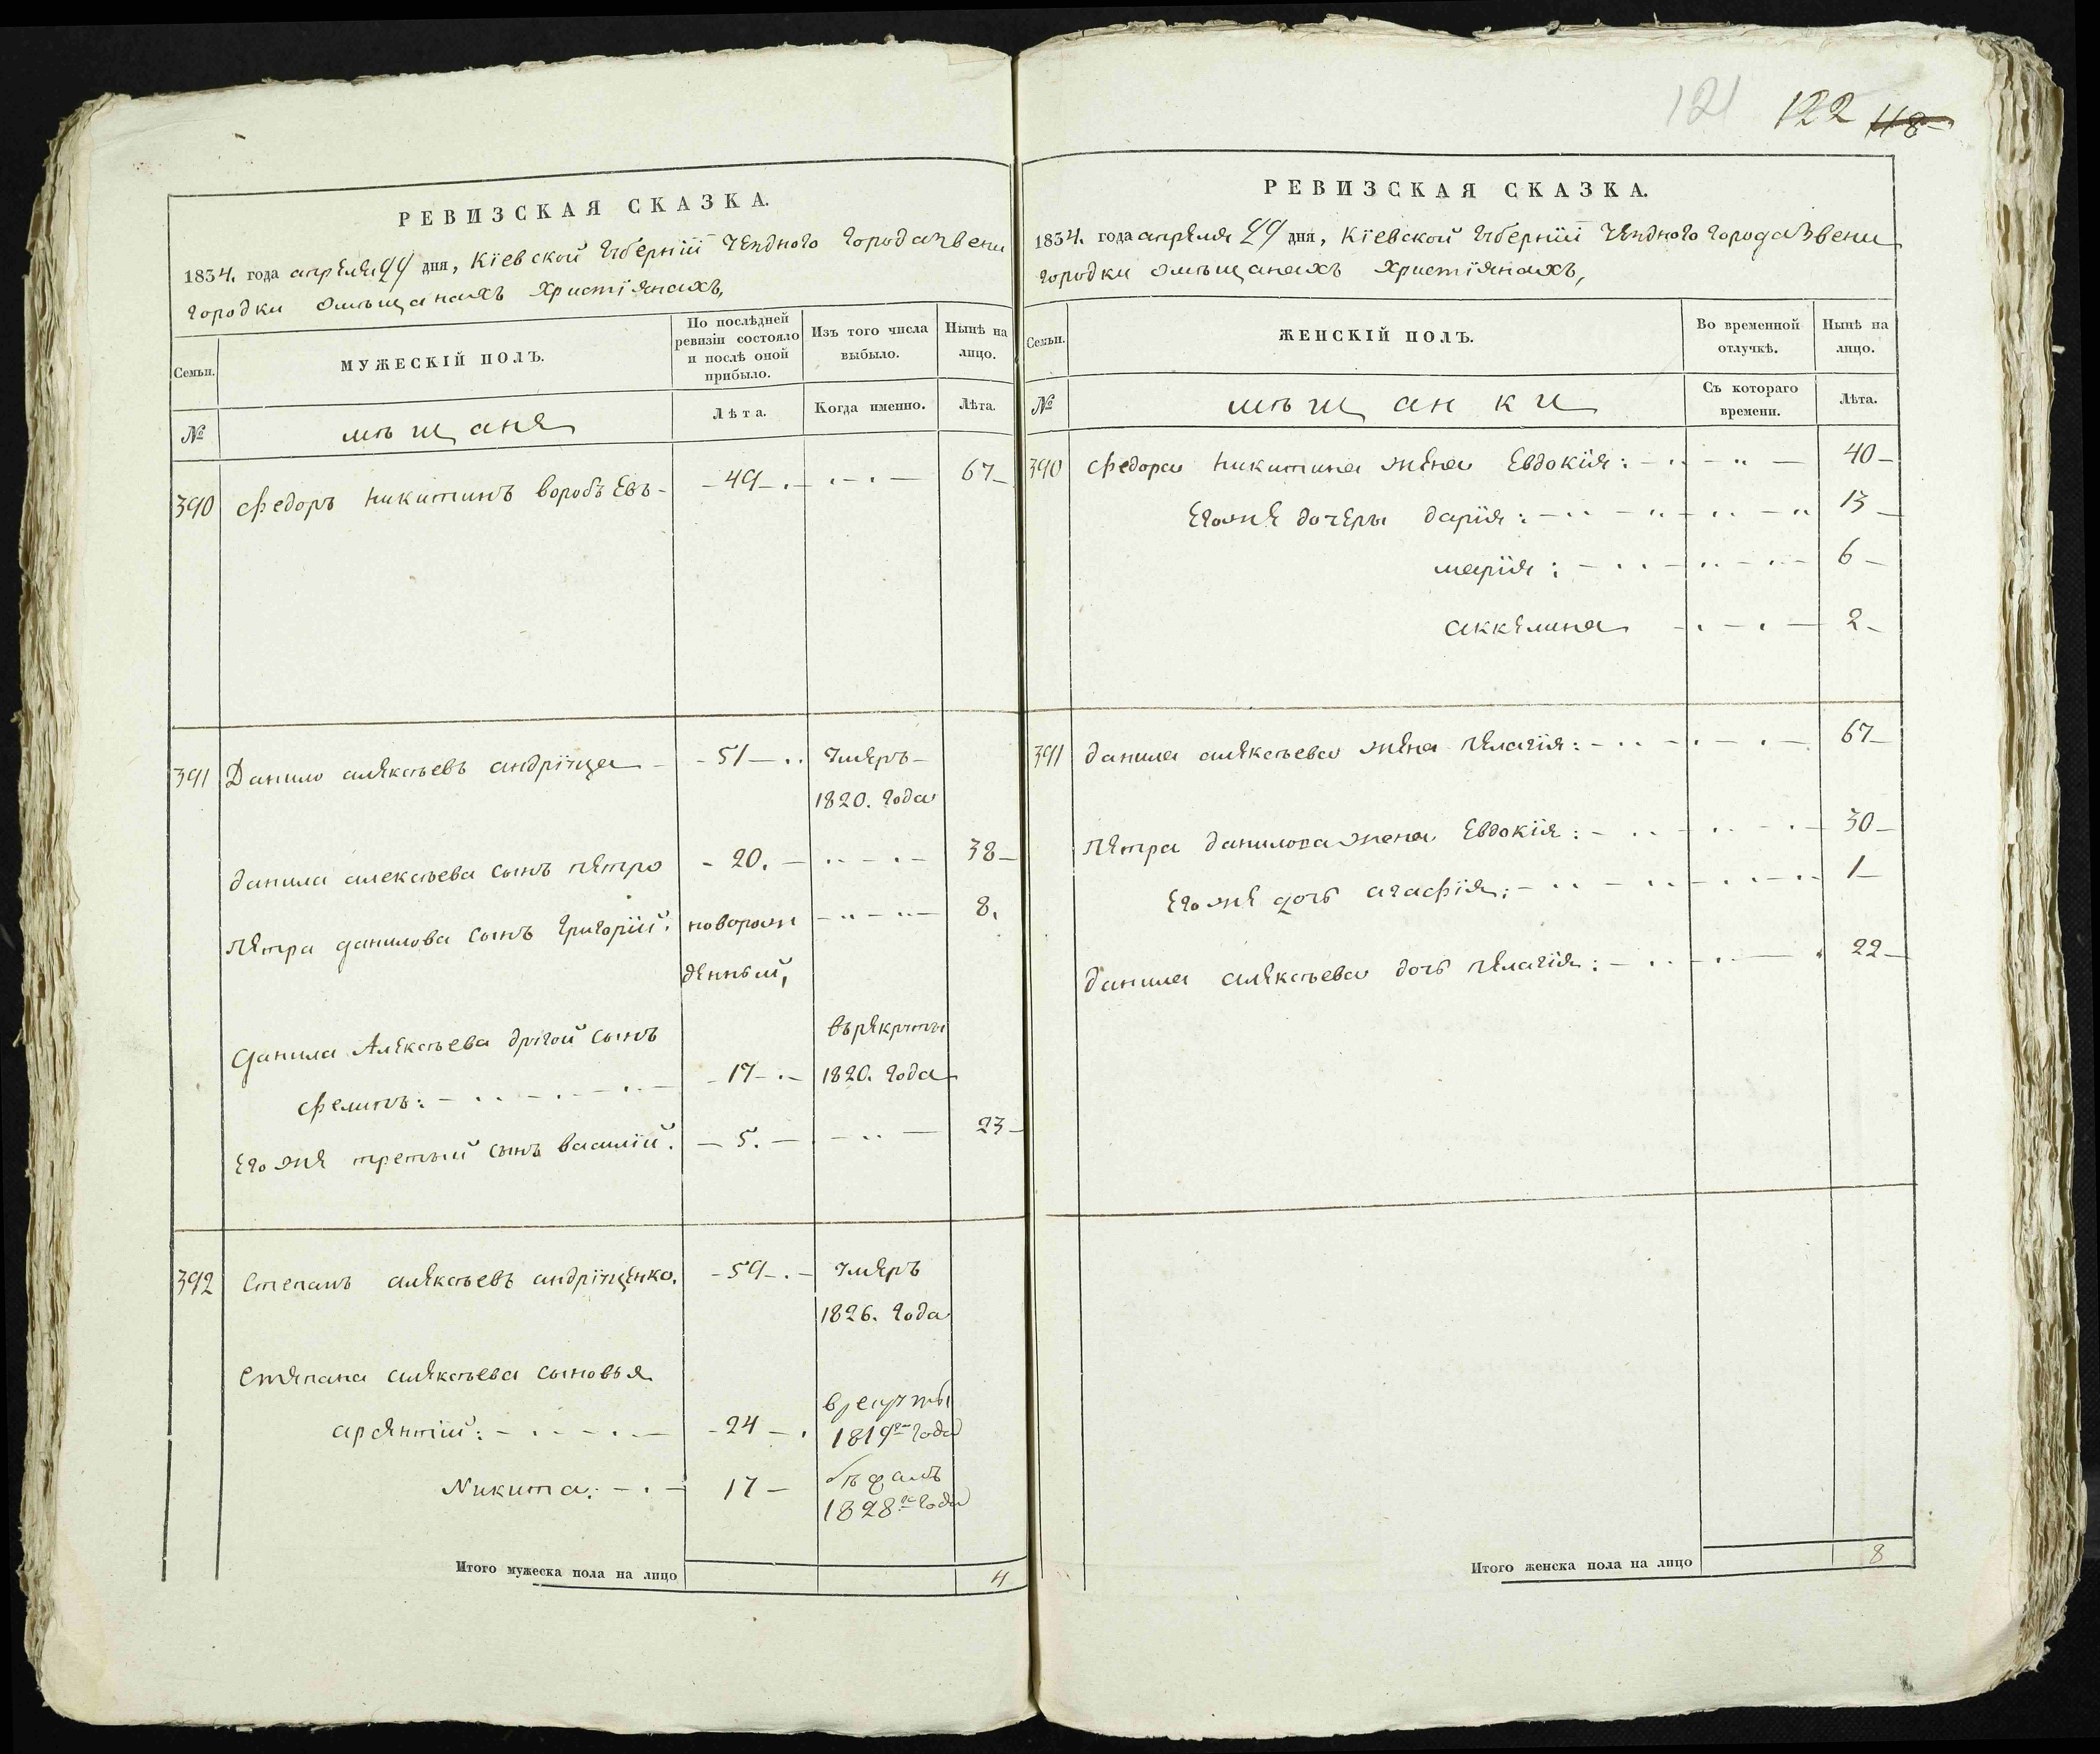 121 122 118
РЕВИЗСКАЯ СКАЗКА.
1834. года апреля 29 дня, Кіевской Губерніи Уездного города Звени
городки омѣщанахъ христіянахъ,
Семьи. МУЖЕСКІЙ ПОЛЪ. По послѣдней ревизіи состояло и послѣ оной прибыло. Изъ того числа выбыло. Нынѣ на лицо.
№ мѣщане Лѣта. Когда именно. Лѣта.
390 Федоръ Никитинъ воробъевъ - 49 67
391 Данило алексѣевъ андріуца 51 умеръ
1820. года
данила алексѣева сынъ петро 20. 38
петра данилова сынъ григорій: новорож 8.
денный,
данила Алексѣева другой сынъ върекруты
филипъ: 17 1820. года
егоже третый сынъ василій. 5. 23
392 степанъ алексѣевъ андріуценко. 59 умеръ
1826. года
степана алексѣева сыновья
арсентій: 24 врекруты
1819го года
Никита: 17 бѣжалъ
1828го года
Итого мужеска пола на лицо 4
РЕВИЗСКАЯ СКАЗКА.
1834. года апреля 29 дня, Кіевской Губерніи Уездного города Звени
городки омѣщанахъ христіянахъ,
Семьи. ЖЕНСКІЙ ПОЛЪ. Во временной отлучкѣ. Нынѣ на лицо.
№ мѣщанки Съ котораго времени. Лѣта.
390 Федора никитина жена Евдокія: 40
егоже дочеры дарія: 13
марія: 6
аккелина 2
391 данила алексѣева жена пелагія: 67
петра данилова жена Евдокія: 30
егоже дочь агафія: 1
данила алексѣева дочь пелагія: 22
Итого женска пола на лицо 8